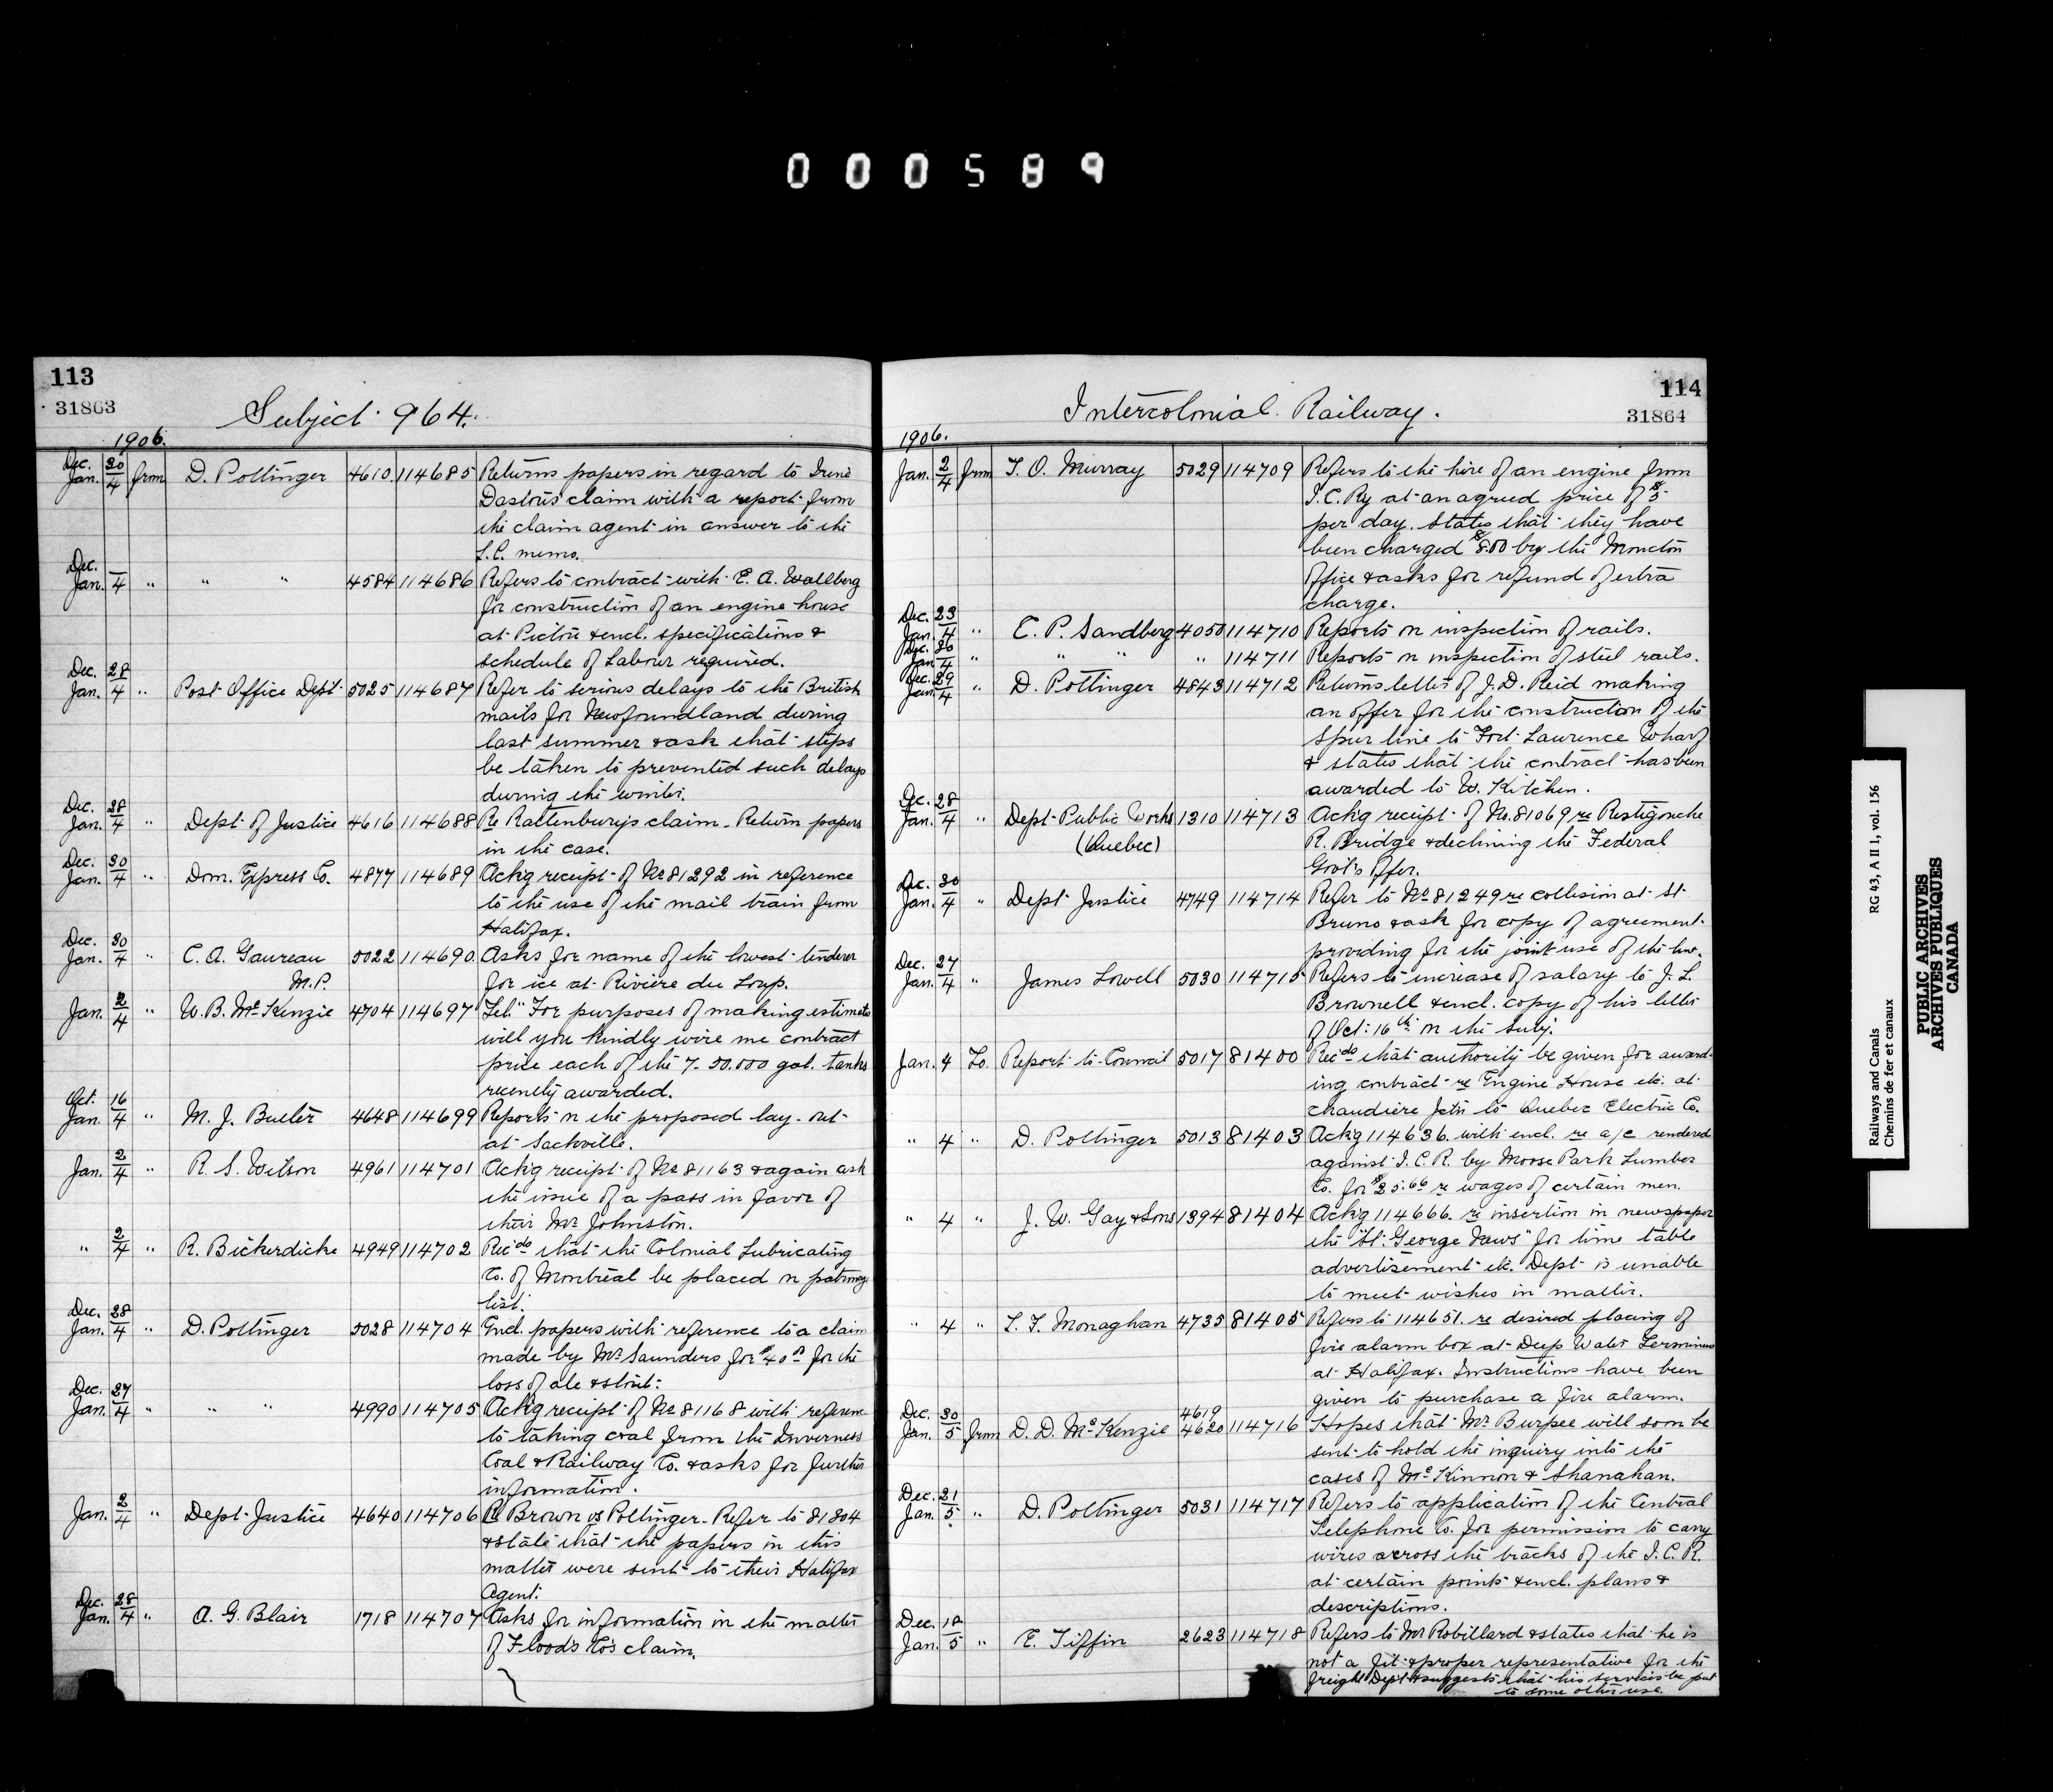 000589
113
31863
Subject 964.
1906.
Dec. 30 Jan. 4 from D. Pottinger 4610 114685 Returns papers in regard to Irene
Dastous claim with a report from
the claim agent in answer to the
L.C. memo.
Dec. — Jan. 4 " " " 4584 114686 Refers to contract with E. A. Wallberg
for construction of an engine house
at Pictou & encl. specifications &
schedule of Labour required.
Dec. 28 Jan. 4 " Post Office Dept. 5025 114687 Refer to serious delays to the British
mails for Newfoundland during
last summer & ask that steps
be taken to prevented such delays
during the winter.
Dec. 28 Jan. 4 " Dept of Justice 4616 114688 Re Rattenbury's claim - Return papers
in the case.
Dec. 30 Jan. 4 " Dom. Express Co. 4877 114689 Ackg receipt of No 81292 in reference
to the use of the mail train from
Halifax.
Dec. 30 Jan. 4 " C. A. Gaureau 5022 114690 Asks for name of the lowest tenderer
M.P. for ice at Riviere du Loup.
Jan. 2/4 " W. B. McKenzie 4704 114697 Tel. "For purposes of making estimate
will you kindly wire me contract
price each of the 7-50.000 gal. tanks
recently awarded.
Oct. 16 Jan. 4 " M. J. Butler 4648 114699 Reports on the proposed lay-out
at Sackville.
Jan. 2/4 " R. S. Wilson 4961 114701 Ackg receipt of No 81163 & again ask
the issue of a pass in favor of
their Mr Johnston.
" 2/4 " R. Bickerdicke 4949 114702 Recds that the Colonial Lubricating
Co. of Montreal be placed on patronage
list.
Dec. 28 Jan. 4 " D. Pottinger 5028 114704 Encl. papers with reference to a claim
made by Mr Saunders for $40 for the
loss of ale & stout.
Dec. 27 Jan. 4 " " " 4990 114705 Ackg receipt of No 81168 with reference
to taking coal from the Inverness
Coal & Railway Co. & asks for further
information.
Jan. 2/4 " Dept. Justice 4640 114706 Re Brown vs Pottinger - Refer to 81304
& state that the papers in this
matter were sent to their Halifax
Agent.
Dec. 28 Jan. 4 " A. G. Blair 1718 114707 Asks for information in the matter
of Flood's Co's claim.
114
31864
Intercolonial Railway.
1906.
Jan. 2/4 from T. O. Murray 5029 114709 Refers to the hire of an engine from
I.C. Ry at an agreed price of $5
per day. States that they have
been charged $8.00 by the Moncton
office & asks for refund of extra
charge.
Dec. 23 Jan. 4 " C. P. Sandberg 4050 114710 Reports on inspection of rails.
Dec. 30 Jan. 4 " " " " 114711 Reports on inspection of steel rails.
Dec. 29 Jan. 4 " D. Pottinger 4843 114712 Returns letter of J. D. Reid making
an offer for the construction of the
Spur line to Fort Laurence Wharf
& states that the contract has been
awarded to W. Kitchen.
Dec. 28 Jan. 4 " Dept Public Works 1310 114713 Ackg receipt of No. 81069 re Restigouche
(Quebec) R. Bridge & declining the Federal
Govt's offer.
Dec. 30 Jan. 4 " Dept Justice 4749 114714 Refer to No 81249 re collision at St.
Bruno & ask for copy of agreement
providing for the joint use of the line.
Dec. 27 Jan. 4 " James Lowell 5030 114715 Refers to increase of salary to J. L.
Brownell & encl. copy of his letter
of Oct. 16th on the subj.
Jan. 4 To Report to Council 5017 81400 Recds that authority be given for award-
ing contract re Engine House etc. at
Chaudiere Jctn to Quebec Electric Co.
" 4 " D. Pottinger 5013 81403 Ackg 114636. with encl. re a/c rendered
against I. C. R. by Moose Park Lumber
Co. for $25.66 re wages of certain men.
" 4 " J. W. Gay & Sons 1394 81404 Ackg 114666. re insertion in newspaper
the "St. George News" for time table
advertisement etc. Dept is unable
to meet wishes in matter.
" 4 " L. F. Monaghan 4735 81405 Refers to 114651. re desired placing of
fire alarm box at Deep Water Terminus
at Halifax. Instructions have been
given to purchase a fire alarm.
Dec. 30 Jan. 5 from D. D. McKenzie 4619 4620 114716 Hopes that Mr Burpee will soon be
sent to hold the inquiry into the
cases of McKinnon & Shanahan.
Dec. 21 Jan. 5 " D. Pottinger 5031 114717 Refers to application of the Central
Telephone Co. for permission to carry
wires across the tracks of the I. C. R.
at certain points & encl. plans &
descriptions.
Dec. 18 Jan. 5 " E. Tiffin 2623 114718 Refers to Mr Robillard & states that he is
not a fit & proper representative for the
freight Dept & suggests that his services be put
to some other use.
Railways and Canals RG 43, A II 1, vol. 156
Chemins de fer et canaux
PUBLIC ARCHIVES
ARCHIVES PUBLIQUES
CANADA